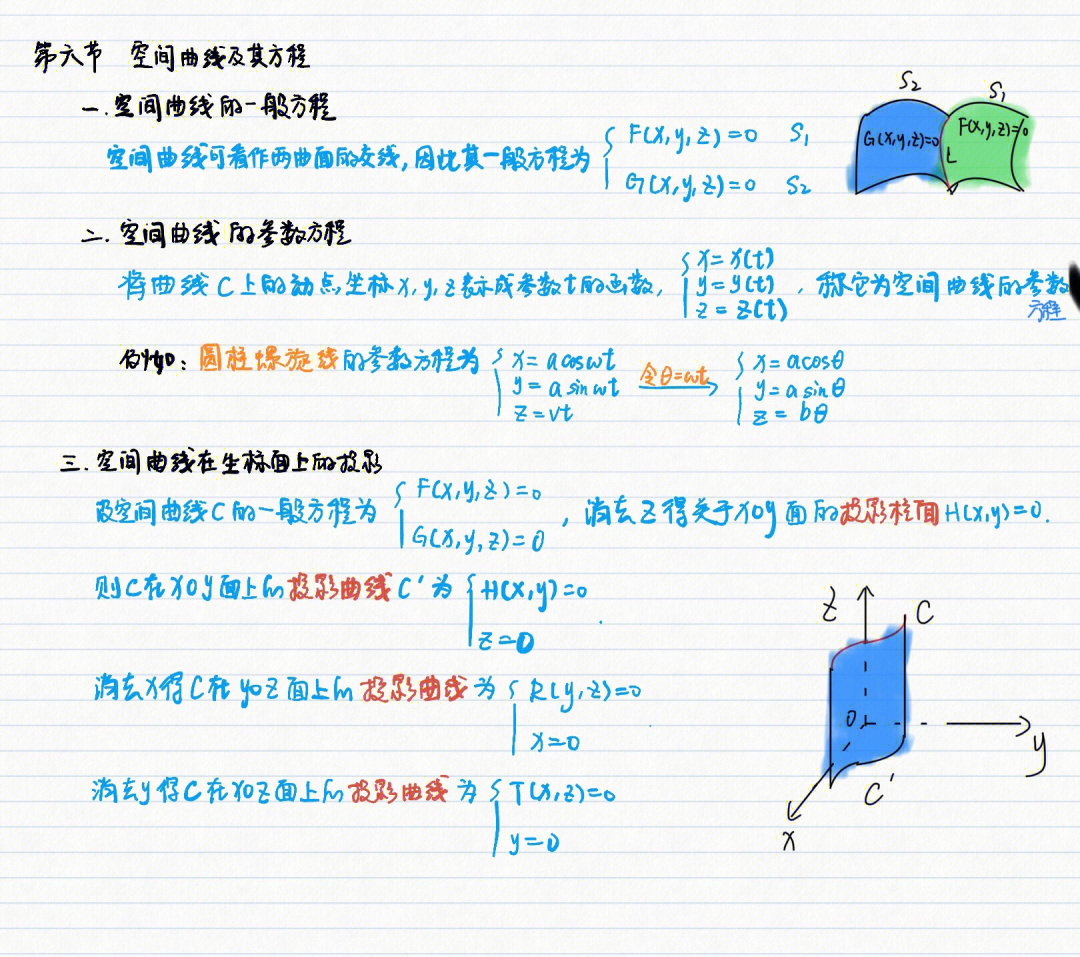 第六节 空间曲线及其方程
一.空间曲线的一般方程
空间曲线可看作两曲面的交线,因此其一般方程为 { F(x,y,z)=0 S₁
G(x,y,z)=0 S₂
S₂ S₁
G(x,y,z)=0 F(x,y,z)=0
L
二.空间曲线的参数方程
将曲线C上的动点坐标x,y,z表示成参数t的函数, { x=x(t)
y=y(t) , 称它为空间曲线的参数
方程
z=z(t)
例如: 圆柱螺旋线的参数方程为 { x=acosωt
y=asinωt
z=vt
令θ=ωt
{ x=acosθ
y=asinθ
z=bθ
三.空间曲线在坐标面上的投影
设空间曲线C的一般方程为 { F(x,y,z)=0
G(x,y,z)=0
, 消去z得关于xoy面的投影柱面H(x,y)=0.
则C在xoy面上的投影曲线C'为 { H(x,y)=0
z=0
消去x得C在yoz面上的投影曲线为 { R(y,z)=0
x=0
消去y得C在xoz面上的投影曲线为 { T(x,z)=0
y=0
z C
0
y
C'
x